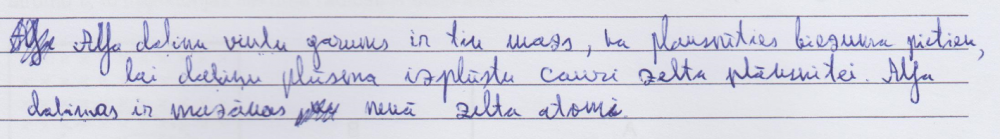 Alfa daliņu viļņu garums ir tik mazs, ka plāksnītes biezums pietiek,
lai daļiņu plūsma izplūstu cauri zelta plāksnītei. Alfa
daļiņas ir mazākas nekā zelta atomi.